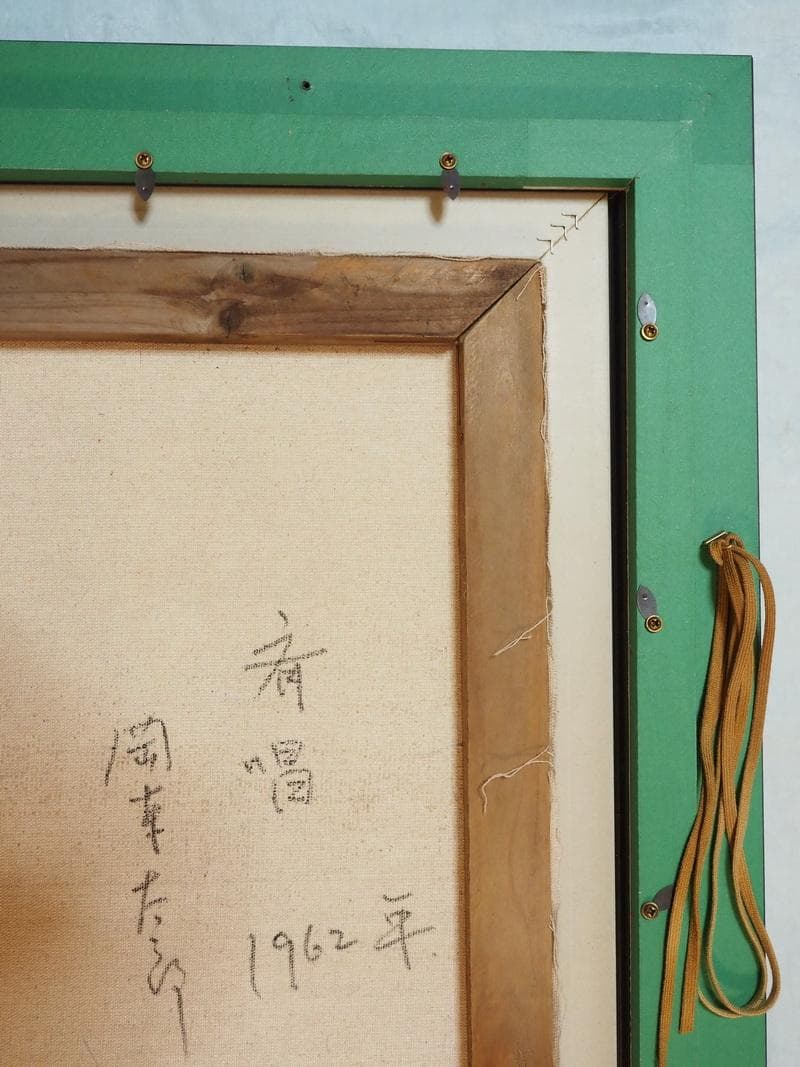 斉唱
1962年
岡本太郎